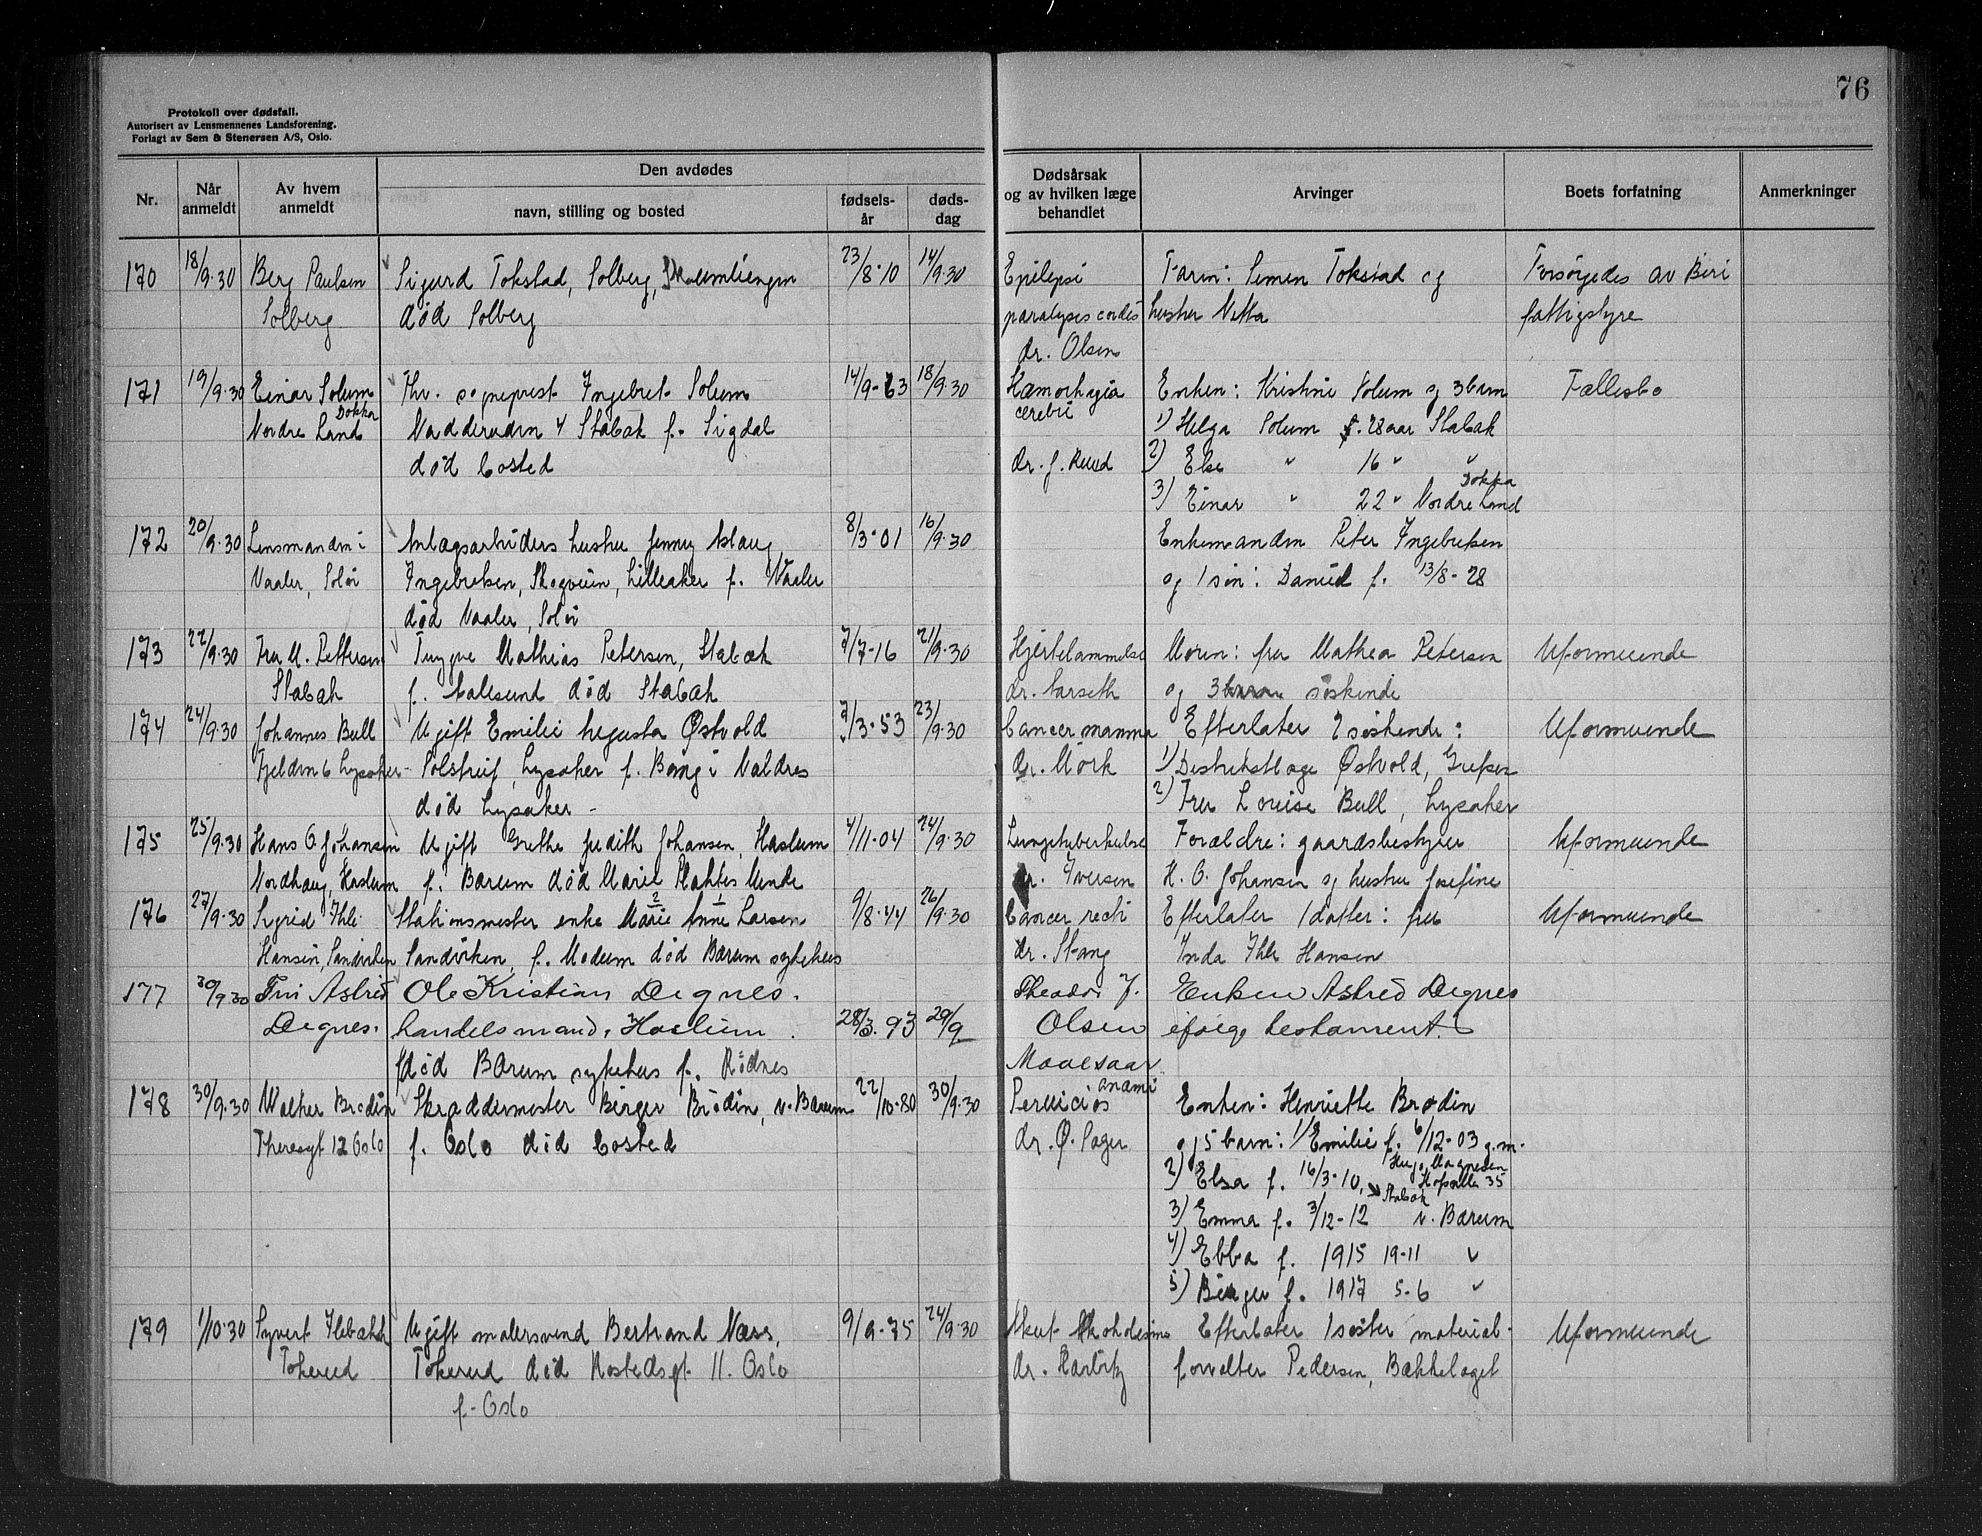 76
Protokoll over dødsfall.
Autorisert av Lensmennenes Landsforening.
Forlagt av Sem & Stenersen A/S, Oslo.
Nr.
Når anmeldt
Av hvem anmeldt
Den avdødes
navn, stilling og bosted
fødsels-år
døds-dag
Dødsårsak og av hvilken læge behandlet
Arvinger
Boets forfatning
Anmerkninger
170 18/9.30 Berg Paulsen Sigurd Tokstad, Solberg, 23/8-10 14/9.30 Epilepsi Farin: Simen Tokstad og Forsørgedes av Biri
Solberg død Solberg paralyses cordis hustru fattigstyre
dr. Olsen
171 19/9.30 Einar Solum Fhv. sogneprest Ingebret Solum 14/9-63 18/9.30 Hæmorhagia Enken: Kristine Solum og 3 barn Fællesbo
Dokka cerebri
Nordre Land Nadderudvn 4 Stabæk f. Sigdal 1) Helga Solum f. 28 aar Stabæk
død bosted dr. J. Ruud 2) Else " 16 " "
Dokka
3) Einar " 22 " Nordre Land
172 20/9.30 Lensmanden i Anlægsarbeiders hustru Jenny Aslaug 8/3-01 16/9.30 Enkemanden Peter Ingebretsen
Vaaler, Solør Ingebretsen, Skogveien, Lilleaker f. Vaaler og 1 søn: Daniel f. 13/8-28
død Vaaler, Solør
173 22/9.30 Fru M. Pettersen Trygve Mathias Petersen, Stabæk 7/7-16 21/9.30 Hjertelammelse Moren: fru Mathea Petersen Uformuende
Stabæk f. Aalesund død Stabæk dr. Aarseth og 3 søskende
174 24/9.30 Johannes Bull Ugift Emilie Augusta Østvold 7/3-53 23/9.30 Cancer mamma Efterlater 2 søskende: Uformuende
Fjeldvn 6 Lysaker Solstreif, Lysaker f. Bang i Valdres dr. Mørk 1) Distriktslæge Østvold, Grefsen
død Lysaker - 2) Fru Louise Bull, Lysaker
175 25/9.30 Hans O. Johansen Ugift Grethe Judith Johansen, Haslum 4/11-04 24/9.30 Lungetuberkulose Forældre: gaardsbestyrer Uformuende
Nordhaug, Haslum f. Bærum død Marie Plahtes Minde dr. Iversen H. O. Johansen og hustru Josefine
176 27/9.30 Sigrid Ihle Stationsmester enke Marie Anne Larsen 9/8-44 26/9.30 Cancer recti Efterlater 1 datter: fru Uformuende
2 1
Hansen, Sandviken Sandviken, f. Modum død Bærum sykehus dr. Stang Inda Ihle Hansen
177 30/9 30 Fru Astrid Ole Kristian Degnes. Theodor J. Enken Astrid Degnes
Degnes. handelsmand, Haslum. 28/3. 93 29/9 Olsen ifølge testament.
død Bærum sykehus f. Rødnes Mavesaar
178 30/9.30 Walter Brodin Skræddermester Birger Brodin, v. Bærum 22/10-80 30/9.30 Perniciøs anæmi Enken: Henriette Brodin
Theresgt 12 Oslo f. Oslo død bosted dr. Ø. Sager og 5 barn: 1) Emilie f. 6/12-03 g.m.
Hugo Magnesen
2) Elsa f. 16/3-10, Stabæk 35
3) Emma f. 3/12-12 v. Bærum
4) Ebba f. 1915 19-11 "
5) Birger f. 1917 5-6 "
179 1/10.30 Syvert Ugift malersvend Bertrand Næss, 9/9-75 24/9.30 Akut Alkoholisme Efterlater 1 søster material- Uformuende
Tokerud Tokerud død Rostedsgt. 11. Oslo dr. forvalter Pedersen, Bækkelaget
f. Oslo